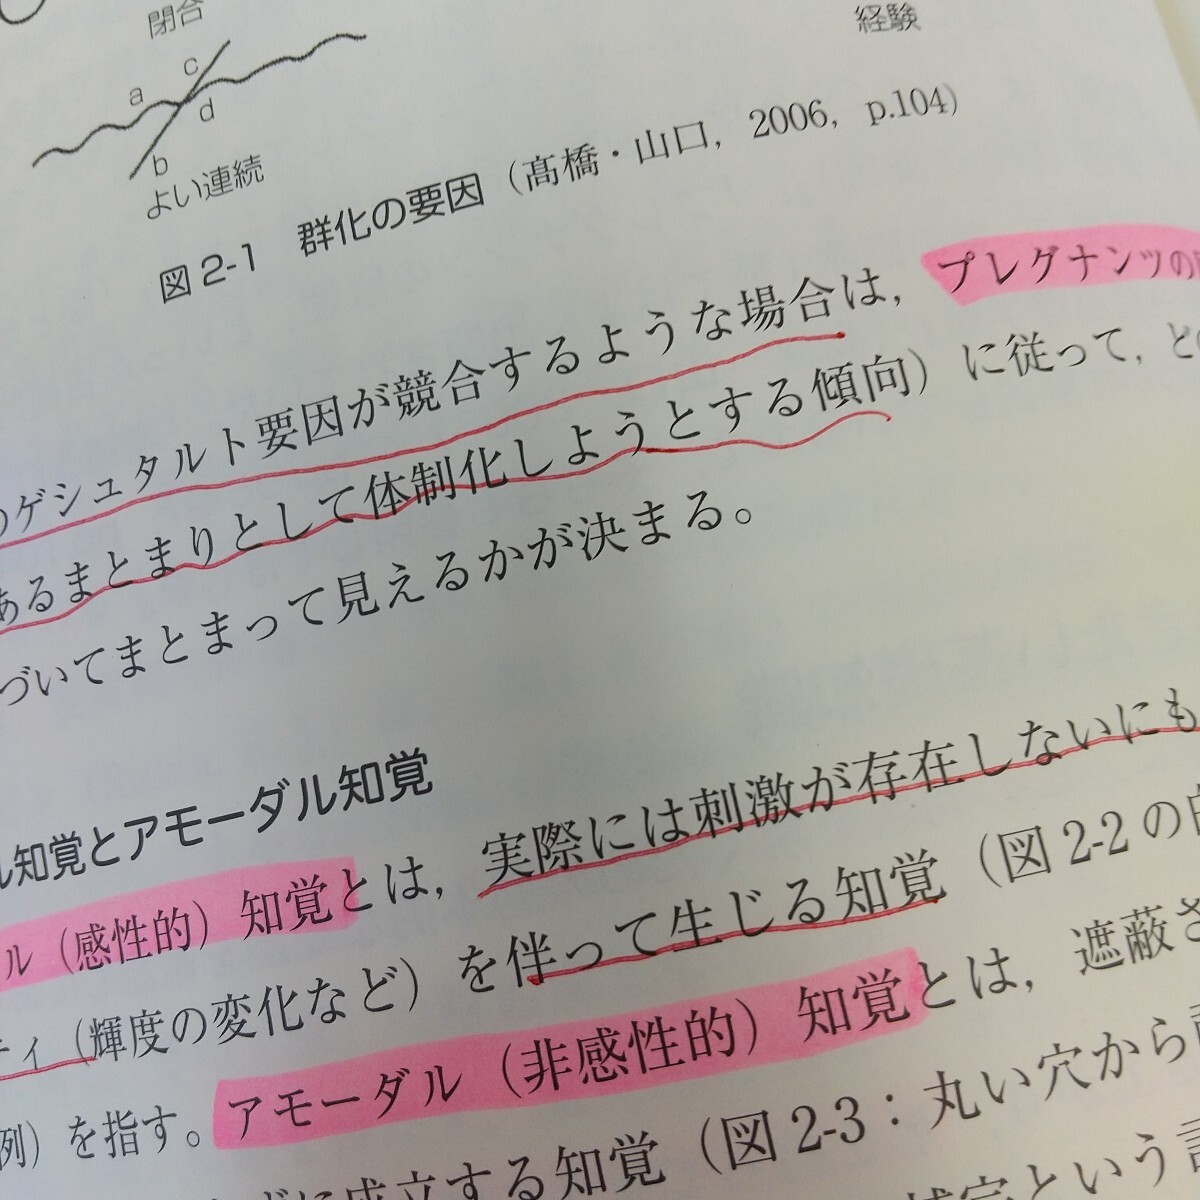 閉合
経験
a
c
d
b
よい連続
図2-1 群化の要因（髙橋・山口，2006，p.104）
のゲシュタルト要因が競合するような場合は，プレグナンツの
あるまとまりとして体制化しようとする傾向）に従って，と
づいてまとまって見えるかが決まる。
ル知覚とアモーダル知覚
ル（感性的）知覚とは，実際には刺激が存在しないにも
ティ（輝度の変化など）を伴って生じる知覚（図2-2の
例）を指す。アモーダル（非感性的）知覚とは，遮蔽さ
に成立する知覚（図2-3：丸い穴から
という